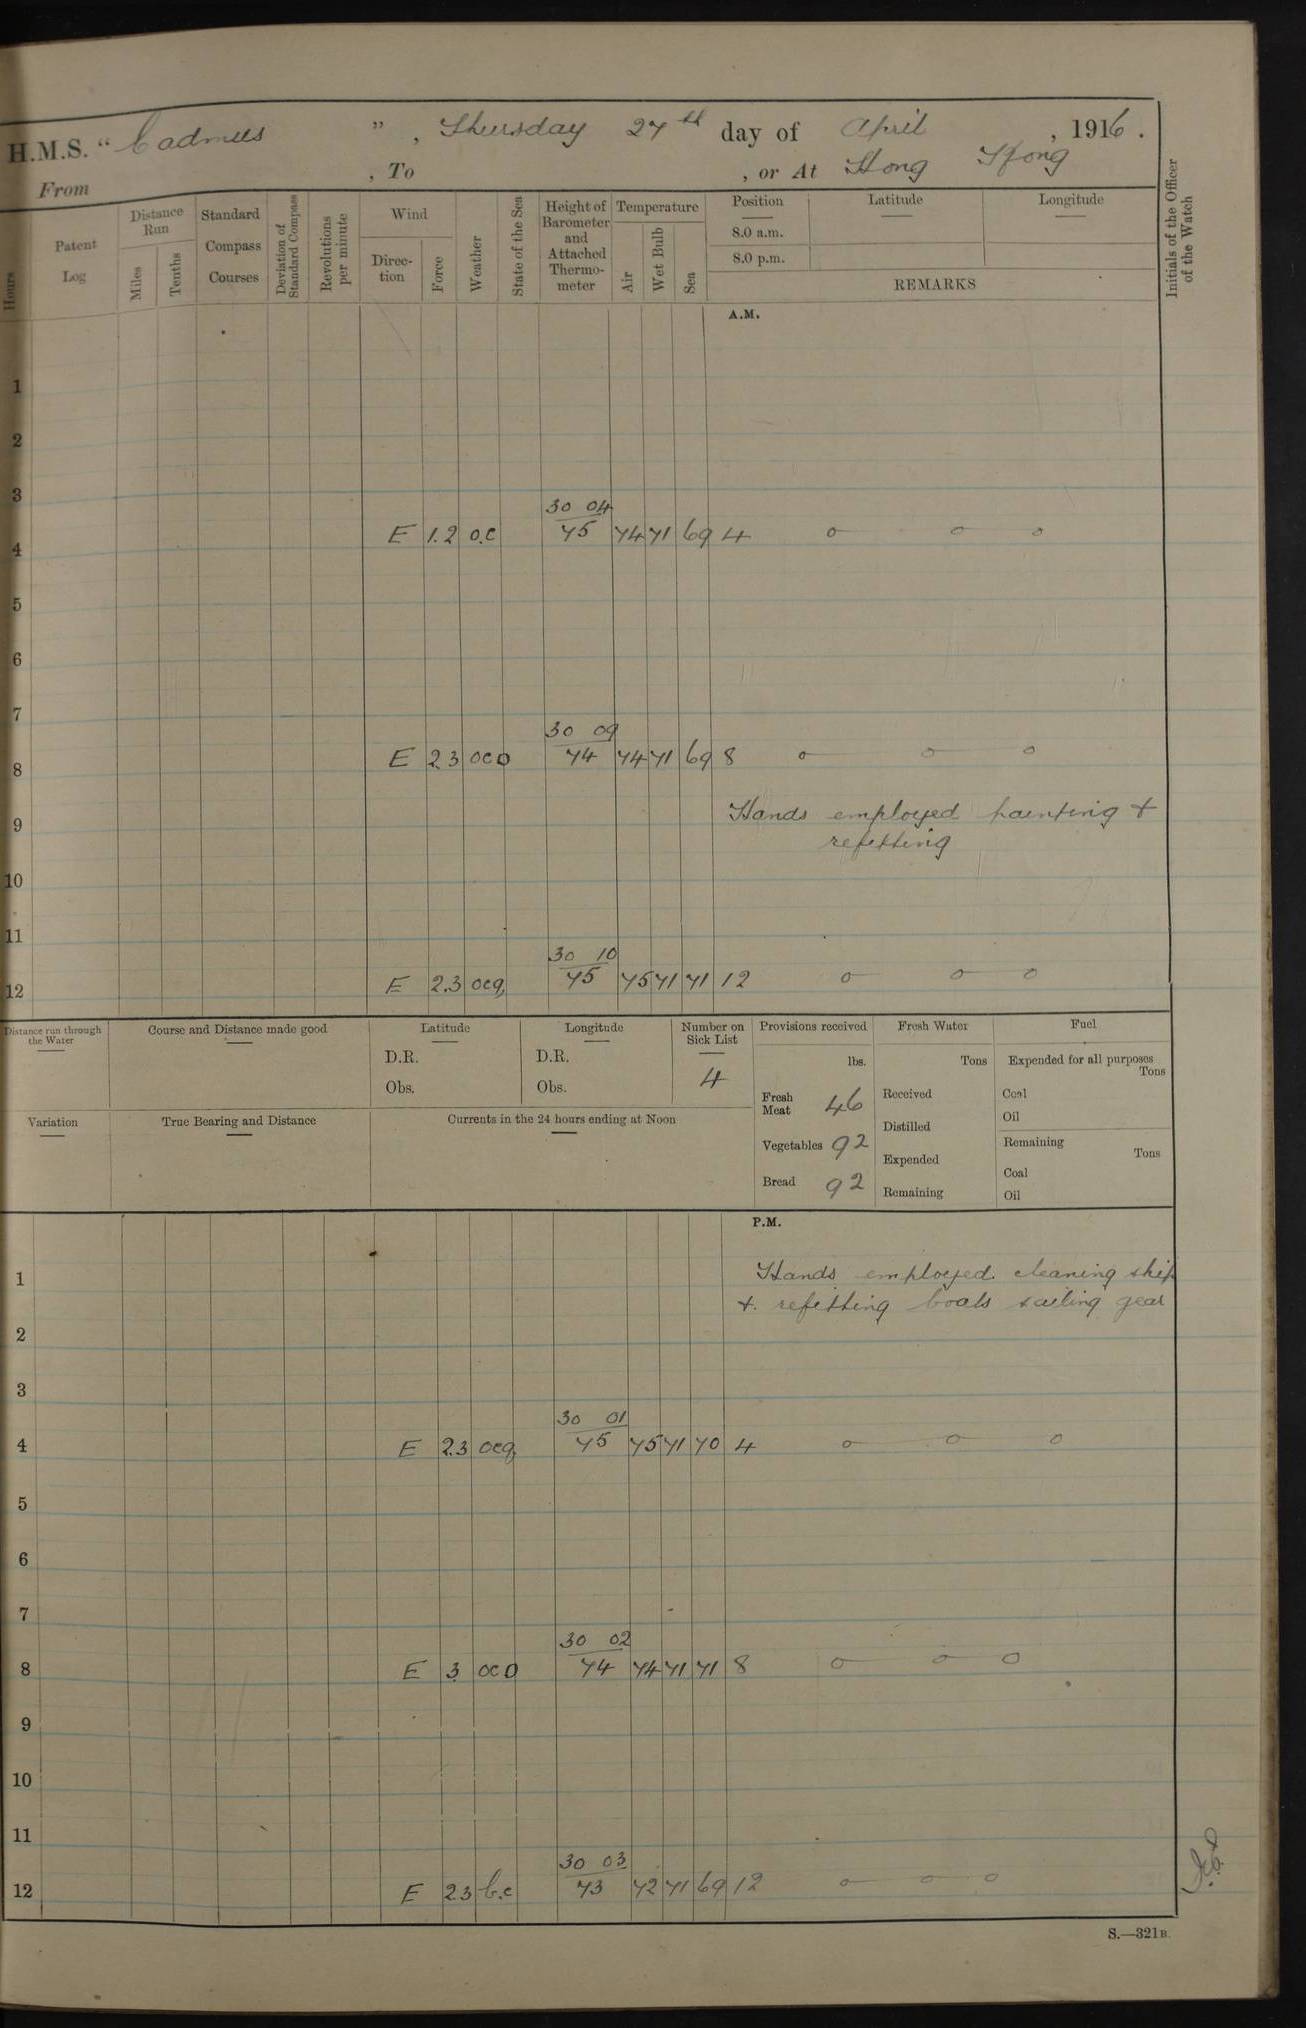 H.M.S. "Cadmus", Thursday 27th day of April, 1916.
From , To , or At Hong Kong
Hours
Patent Log
Distance Run
Miles
Tenths
Standard Compass Courses
Deviation of Standard Compass
Revolutions per minute
Wind
Direction
Force
Weather
State of the Sea
Height of Barometer and Attached Thermometer
Temperature
Air
Wet Bulb
Sea
Position
8.0 a.m.
8.0 p.m.
Latitude
Longitude
REMARKS
Initials of the Officer of the Watch
A.M.
1
2
3
30 04
4 E 1.2 o.c 75 74 71 69 4 o o o
5
6
7
30 09
8 E 2 3 oco 74 74 71 69 8 o o o
9 Hands employed painting +
refitting
10
11
30 10
12 E 2.3 ocq 75 75 71 71 12 o o o
Distance run through the Water
Course and Distance made good
Latitude
D.R.
Obs.
Longitude
D.R.
Obs.
Number on Sick List
4
Provisions received
lbs.
Fresh Meat 46
Vegetables 92
Bread 92
Fresh Water
Tons
Received
Distilled
Expended
Remaining
Fuel
Expended for all purposes
Tons
Coal
Oil
Remaining
Tons
Coal
Oil
Variation
True Bearing and Distance
Currents in the 24 hours ending at Noon
P.M.
1 Hands employed cleaning ship
+ refitting boats sailing gear
2
3
30 01
4 E 2.3 ocq 75 75 71 70 4 o o o
5
6
7
30 02
8 E 3 oco 74 74 71 71 8 o o o
9
10
11
30 03
12 E 2 3 b.c 73 72 71 69 12 o o o
S.—321B.